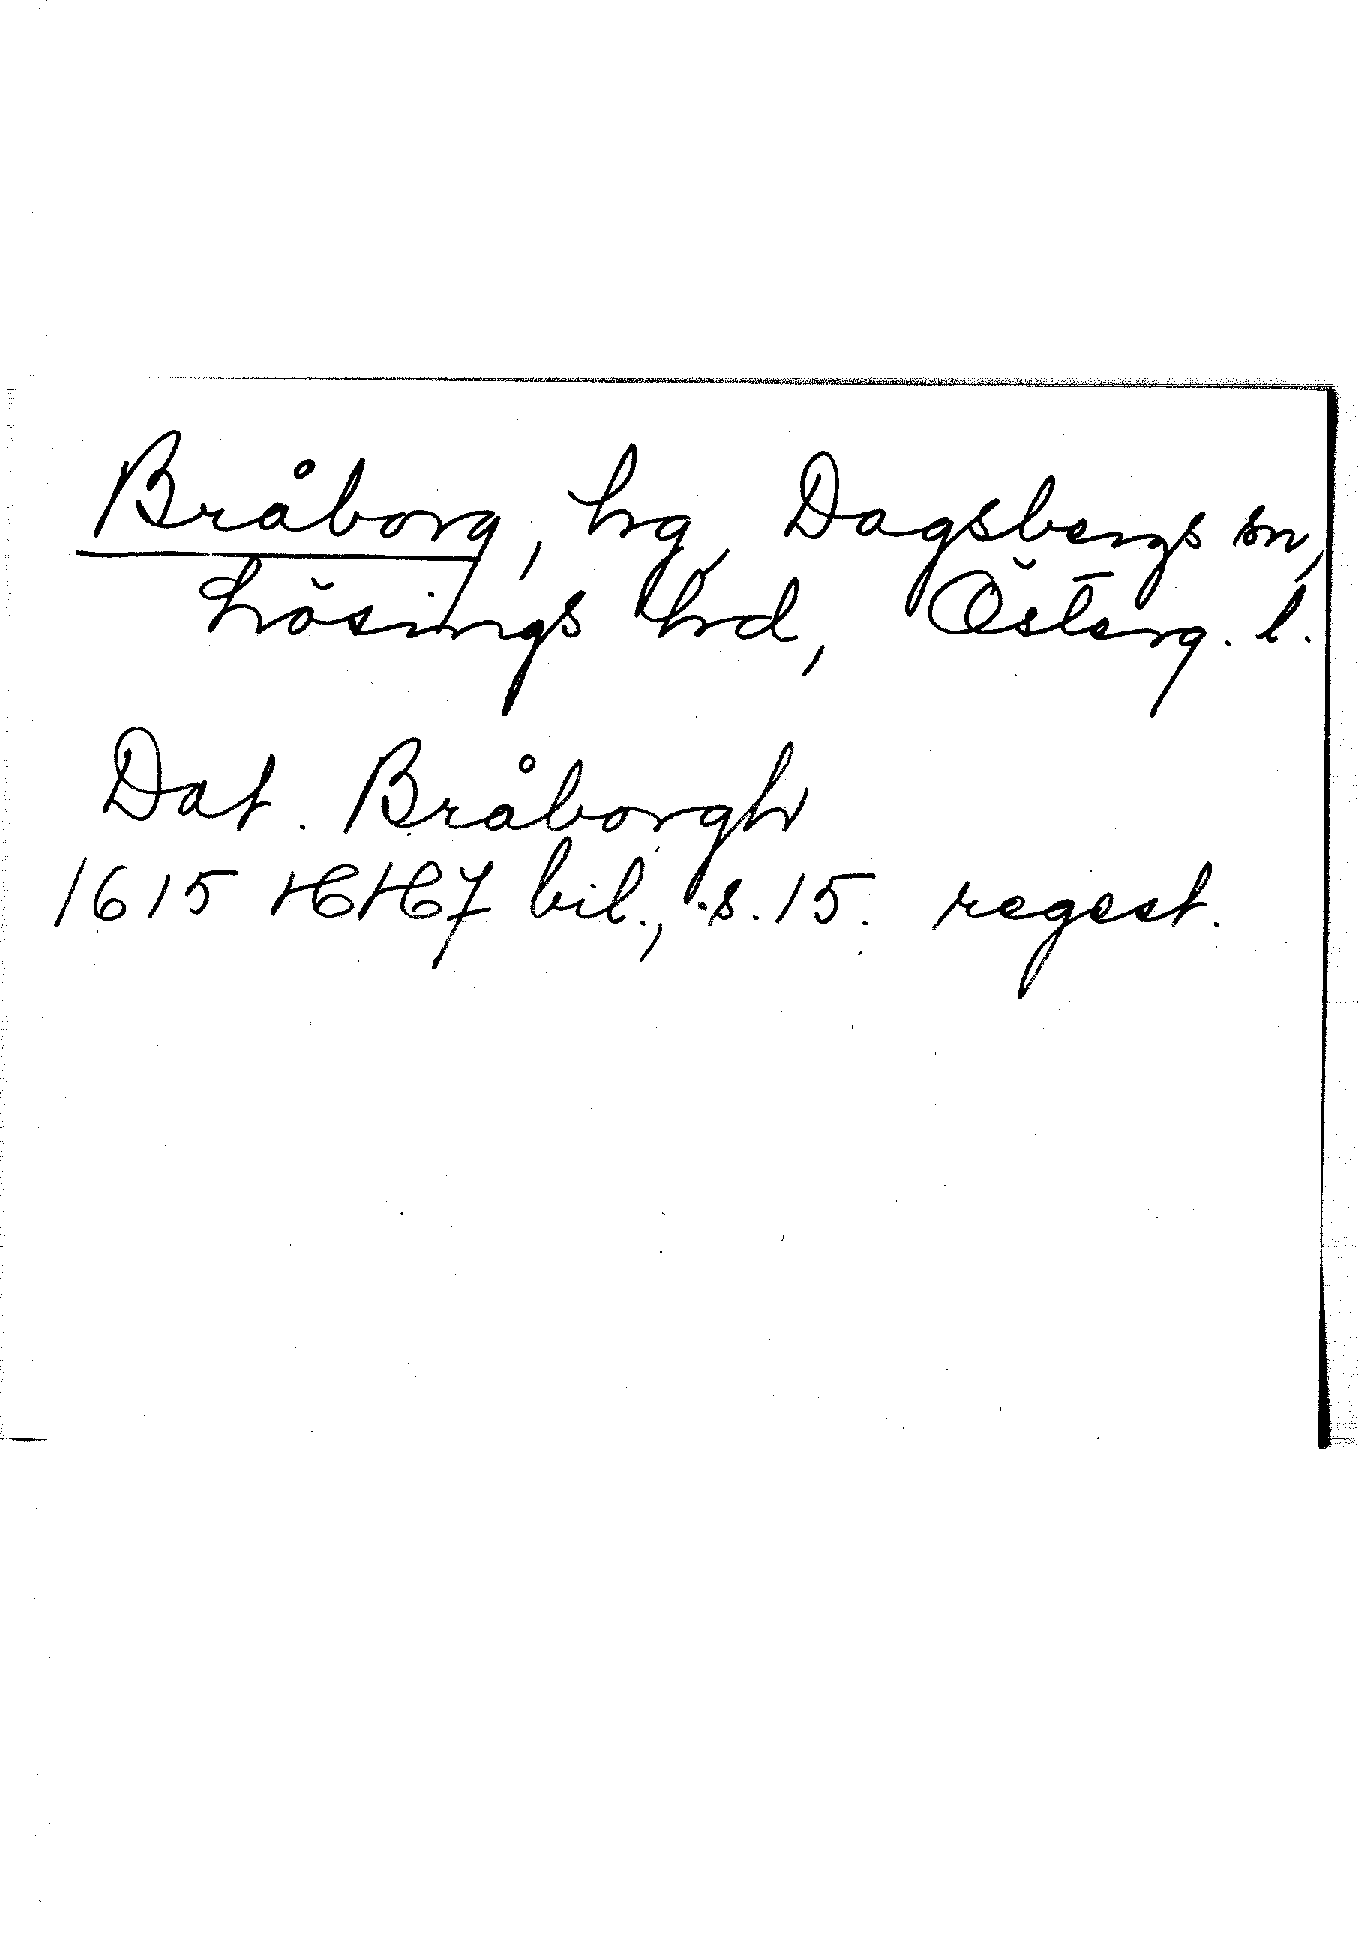 Bråborg, hg, Dagsbergs sn,
Lösings hd, Österg. l.
Dat. Bråborgh
1615 HH7 bil., s. 15. regest.